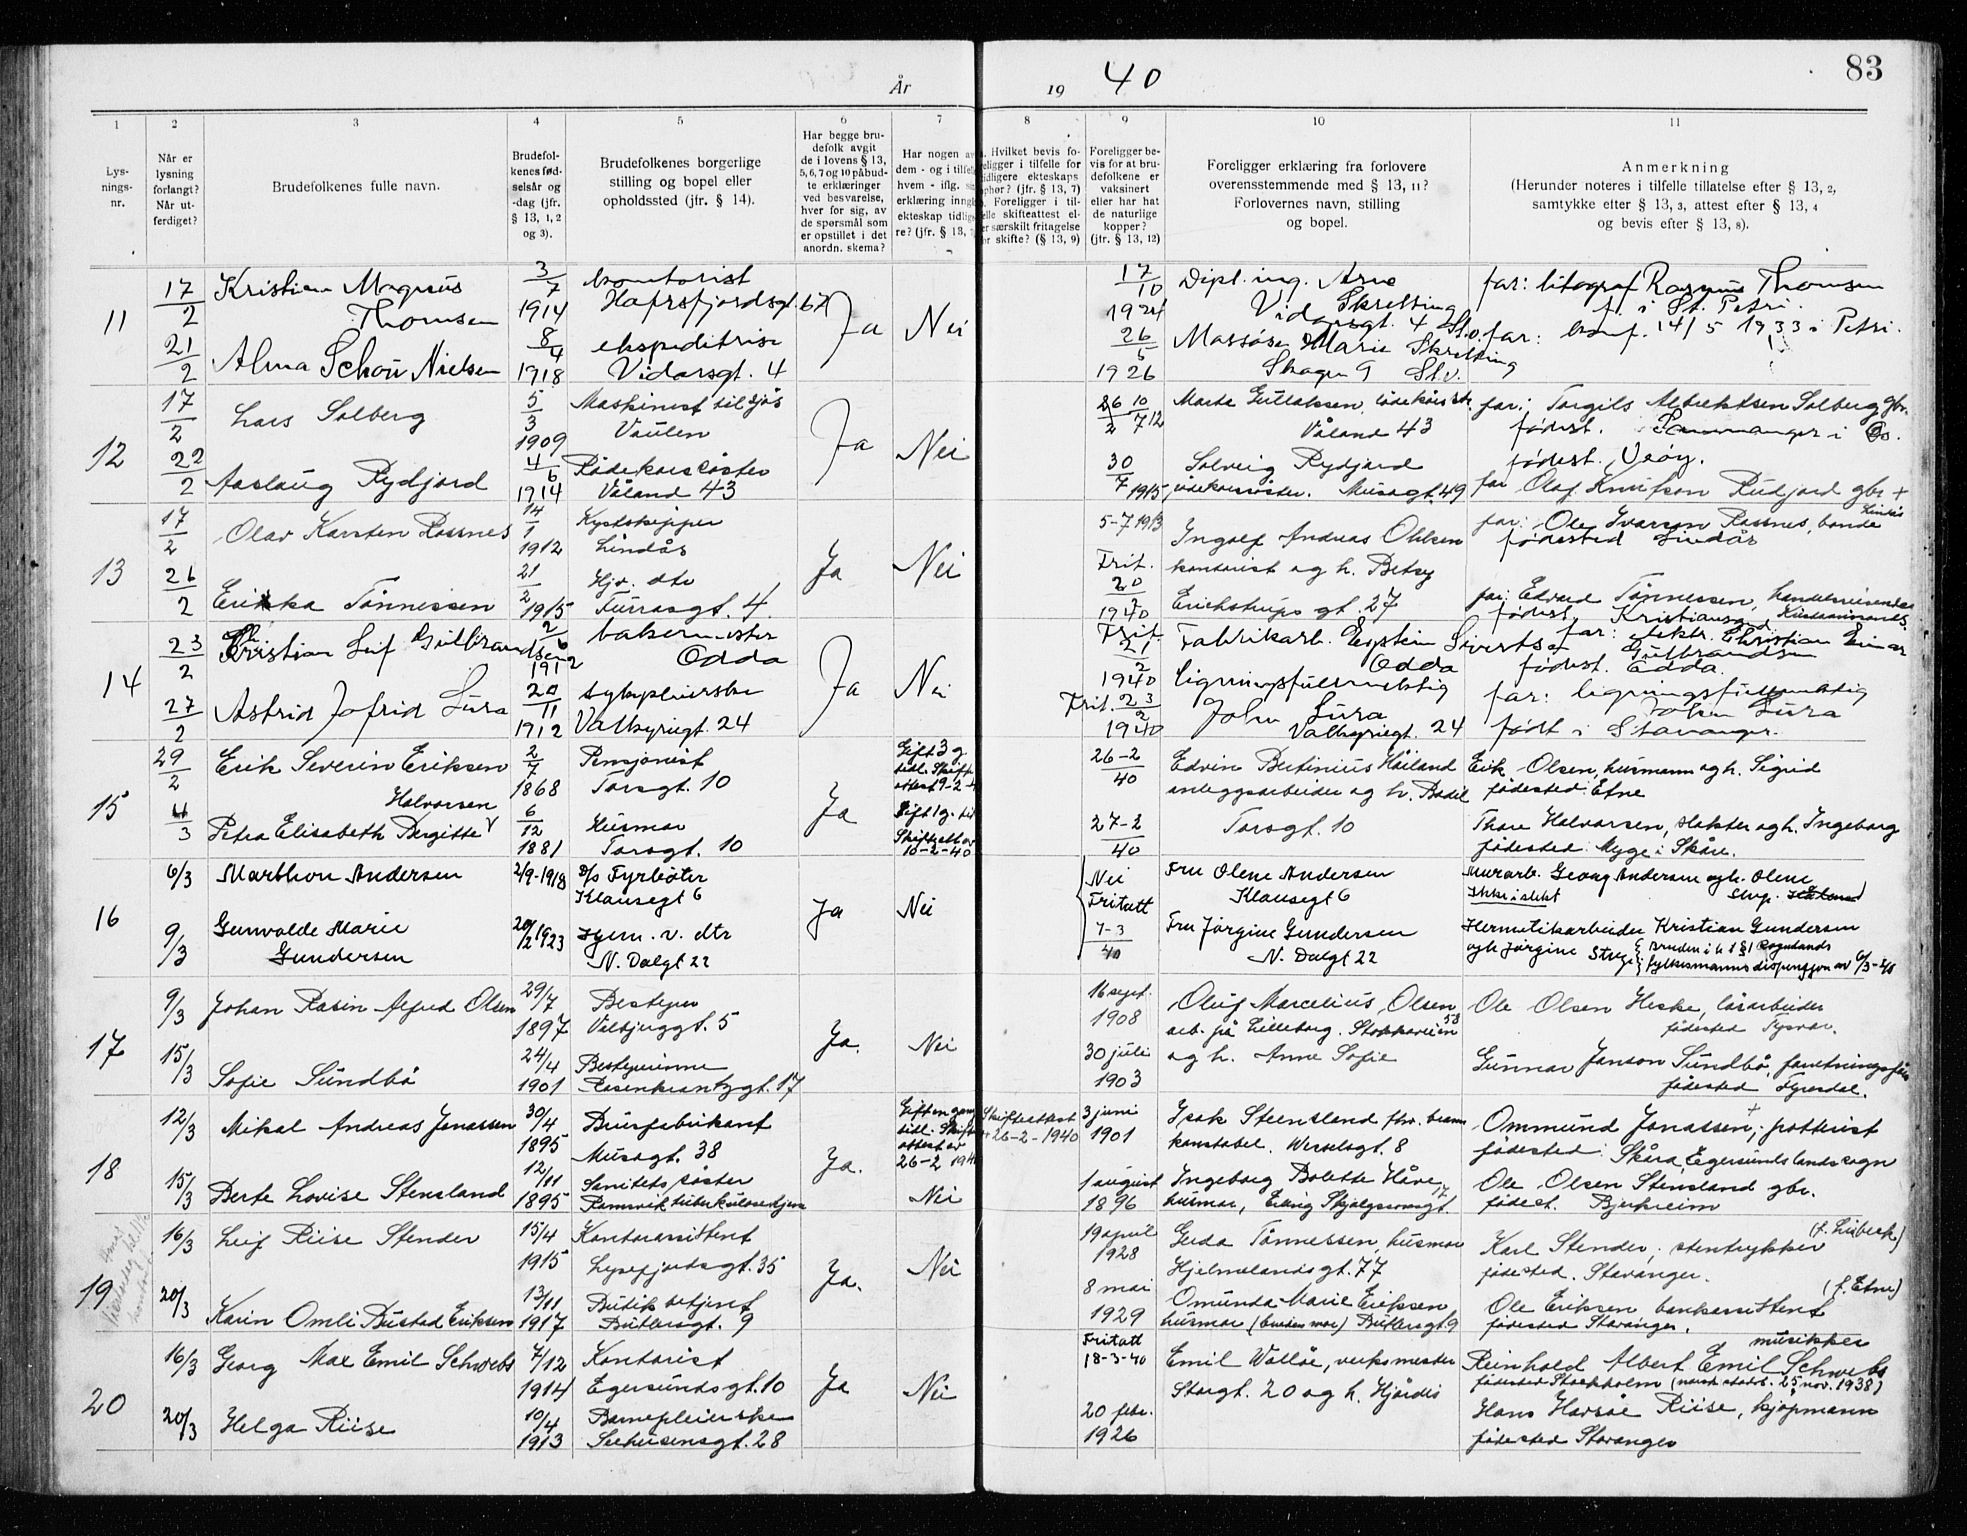 83
År 1940
1 2 3 4 5 6 7 8 9 10 11
Lysningsnr.
Når er lysning forlangt? Når utferdiget?
Brudefolkenes fulle navn.
Brudefolkenes fødselsår og -dag (jfr. § 13, 1, 2 og 3).
Brudefolkenes borgerlige stilling og bopel eller opholdssted (jfr. § 14).
Har begge brudefolk avgit de i lovens § 13, 5, 6, 7 og 10 påbudte erklæringer ved besvarelse, hver for sig, av de spørsmål som er opstillet i det anordn. skema?
Har nogen av dem - og i tilfelle hvem - iflg.
erklæring inngå
ekteskap tidlige
re? (jfr. § 13,
Hvilket bevis fo-
religger i tilfelle for
tidligere ekteskaps
ophør? (jfr. § 13, 7)
Foreligger i til-
elle skifteattest el-
er særskilt fritagelse
or skifte? (§ 13, 9)
Foreligger bevis for at brudefolkene er vaksinert eller har hat de naturlige kopper? (jfr. § 13, 12)
Foreligger erklæring fra forlovere overensstemmende med § 13, 11? Forlovernes navn, stilling og bopel.
Anmerkning
(Herunder noteres i tilfelle tillatelse efter § 13, 2, samtykke efter § 13, 3, attest efter § 13, 4 og bevis efter § 13, 8).
11
17/2 Kristian Magnus Thomsen 3/7 1914 kontorist Hafrsfjordsgt. 67 Ja Nei 17/10 1924 Dipl. ing. Arne Skretting Vidarsgt. 4 St.v. far: litograf Rasmus Thomsen f. i St. Petri.
21/2 Alma Schou Nielsen 8/4 1918 ekspeditrise Vidarsgt. 4 26/5 1926 Massøse Marie Skretting Skagen 9 St.v. far: konf. 14/5 1933 i Petri.
12
17/2 Lars Solberg 5/3 1909 Maskinist til sjøs Vaulen Ja Nei 26/2 10/7 12 Marta Gullaksen, Våland 43 far: Torgils Albrektsen Solberg gbr. fødest.
22/2 Aaslaug Rydjord 4/6 1914 Rødekorssøster Våland 43 30/7 1915 Solveig Rydjord rødekorssøster. Musegt. 49 fødest. Veøy. far Olaf Knutson Rudjord gbr +
13
17/2 Olav Karsten Rossnes 14/1 1912 Kystskipper Lindås Ja Nei 5-7 1913 Ingolf Andreas Ohlsen kontorist og h. Betsy far: Ole Ivarson Rossnes, bonde Lindås fødested Lindås
26/2 Erikka Tönnessen 21/2 1915 Hjv. dtr Furrasgt. 4. Frit. 20/2 1940 Erichstrups gt. 27 far: Edvard Tönnessen, handelsreisende Kristiansand. fødest. Kristiansand
14
23/2 Christian Leif Gulbrandsen 2/6 1912 bakermester Odda Ja Nei Frit. 21/2 1940 Fabrikarb. Eystein Sivertsen Odda far: Christian Einar Gulbrandsen fødest. Odda.
27/2 Astrid Jofrid Lura 20/11 1912 sykepleierske Valkyriegt. 24 Frit. 23/2 1940 ligningsfullmektig John Lura Valkyriegt. 24 far: ligningsfullmektig John Lura født i Stavanger.
15
29/2 Erik Severin Eriksen 2/7 1868 Pensjonist Torsgt. 10 Ja Gift 3 g. tidl. Skifteattest 9-2-4 26-2/40 Edvin Bertinius Håiland anleggsarbeider og h. Bodil Erik Olsen, husmann og h. Sigrid fødested Etne
4/3 Petra Elisabeth Bergitte Halvorsen 6/12 1881 Husmor Torsgt. 10 Gift 1 g. tidl. Skifteatt av 10-2-40 27-2/40 Torsgt. 10 Thore Halvorsen, slakter og h. Ingeborg fødested: Myge i Skåre.
16
6/3 Marthon Andersen 2/9-1918 D/S Fyrbøter Klausegt 6 Ja Nei Nei Fritatt 7-3/40 Fru Olene Andersen Klausegt 6 Murarb. Georg Andersen og h. Olene Ikke i slekt
9/3 Gunvalde Marie Gundersen 20/2 1923 Hjem. v. dtr N. Dalgt 22 Fru Jørgine Gundersen N. Dalgt 22 Hermetikarbeider Kristian Gundersen og h Jørgine Bruden i h t § 1 Rogalands fylkesmanns dispensasjon av 6/3-40
17
9/3 Johan Rasin Alfred Olsen 29/7 1897 Bestyrer Valbjørggt. 5 Ja. Nei 16 sept. 1908 Oluf Marcelius Olsen arb. på Lilleborg. Stokkaveien 53 Ole Olsen Heske, løsarbeider fødested Tysvær.
15/3 Sofie Sundbö 24/4 1901 Bestyrerinne Rosenkrantzgt. 17 30 juli 1903 og h. Anne Sofie Gunnar Janson Sundbö, forretningsfører fødested Fyresdal.
18
12/3 Mikal Andreas Jonassen 30/4 1895 Brusfabrikant Musegt. 38 Ja. Gift en gang tidl. Skifteattest av 26-2 1940 Skifteattest 26-2-1940 3 juni 1901 Isak Steensland fhv. brannkonstabel. Wesselsgt. 8 Ommund Jonassen +, potterist fødested: Skåra, Egersunds landssogn
15/3 Berte Lovise Stensland 12/11 1895 Sanitetssöster Ramsvik tuberkulosehjem Nei 1 august 1896 Ingeborg Bolette Håve, husmor, Erling Skjalgssonsgt. 17 Ole Olsen Stensland gbr. fødest. Bjerkreim
19
16/3 Leif Riise Stender 15/4 1915 Kontorassistent Lysefjordsgt. 35 Ja. Nei 19 april 1928 Guda Tönnessen, husmor Hjelmelandsgt. 77 Karl Stender, stentrykker (f. Lübeck) fødested. Stavanger.
20/3 Karin Omli Bustad Eriksen 13/11 1917 Butikbetjent Butlersgt. 9 8 mai 1929 Omunda Marie Eriksen husmor (brudens mor) Butlersgt. 9 Ole Eriksen, bankassistent (f. Etne) fødested Stavanger.
20
16/3 Georg Max Emil Schwebs 7/12 1914 Kontorist Egersundsgt. 10 Ja Nei Fritatt 18-3-40 Emil Walløe, verksmester Storgt. 20 og h. Hjördis Reinhold Albert Emil Schwebs musikker fødested Stockholm (norsk statsb. 25 nov. 1938)
20/3 Helga Riise 10/4 1913 Barnepleierske Seehusensgt. 28 20 febr. 1926 Hans Harsøe Riise, kjøpmann fødested Stavanger